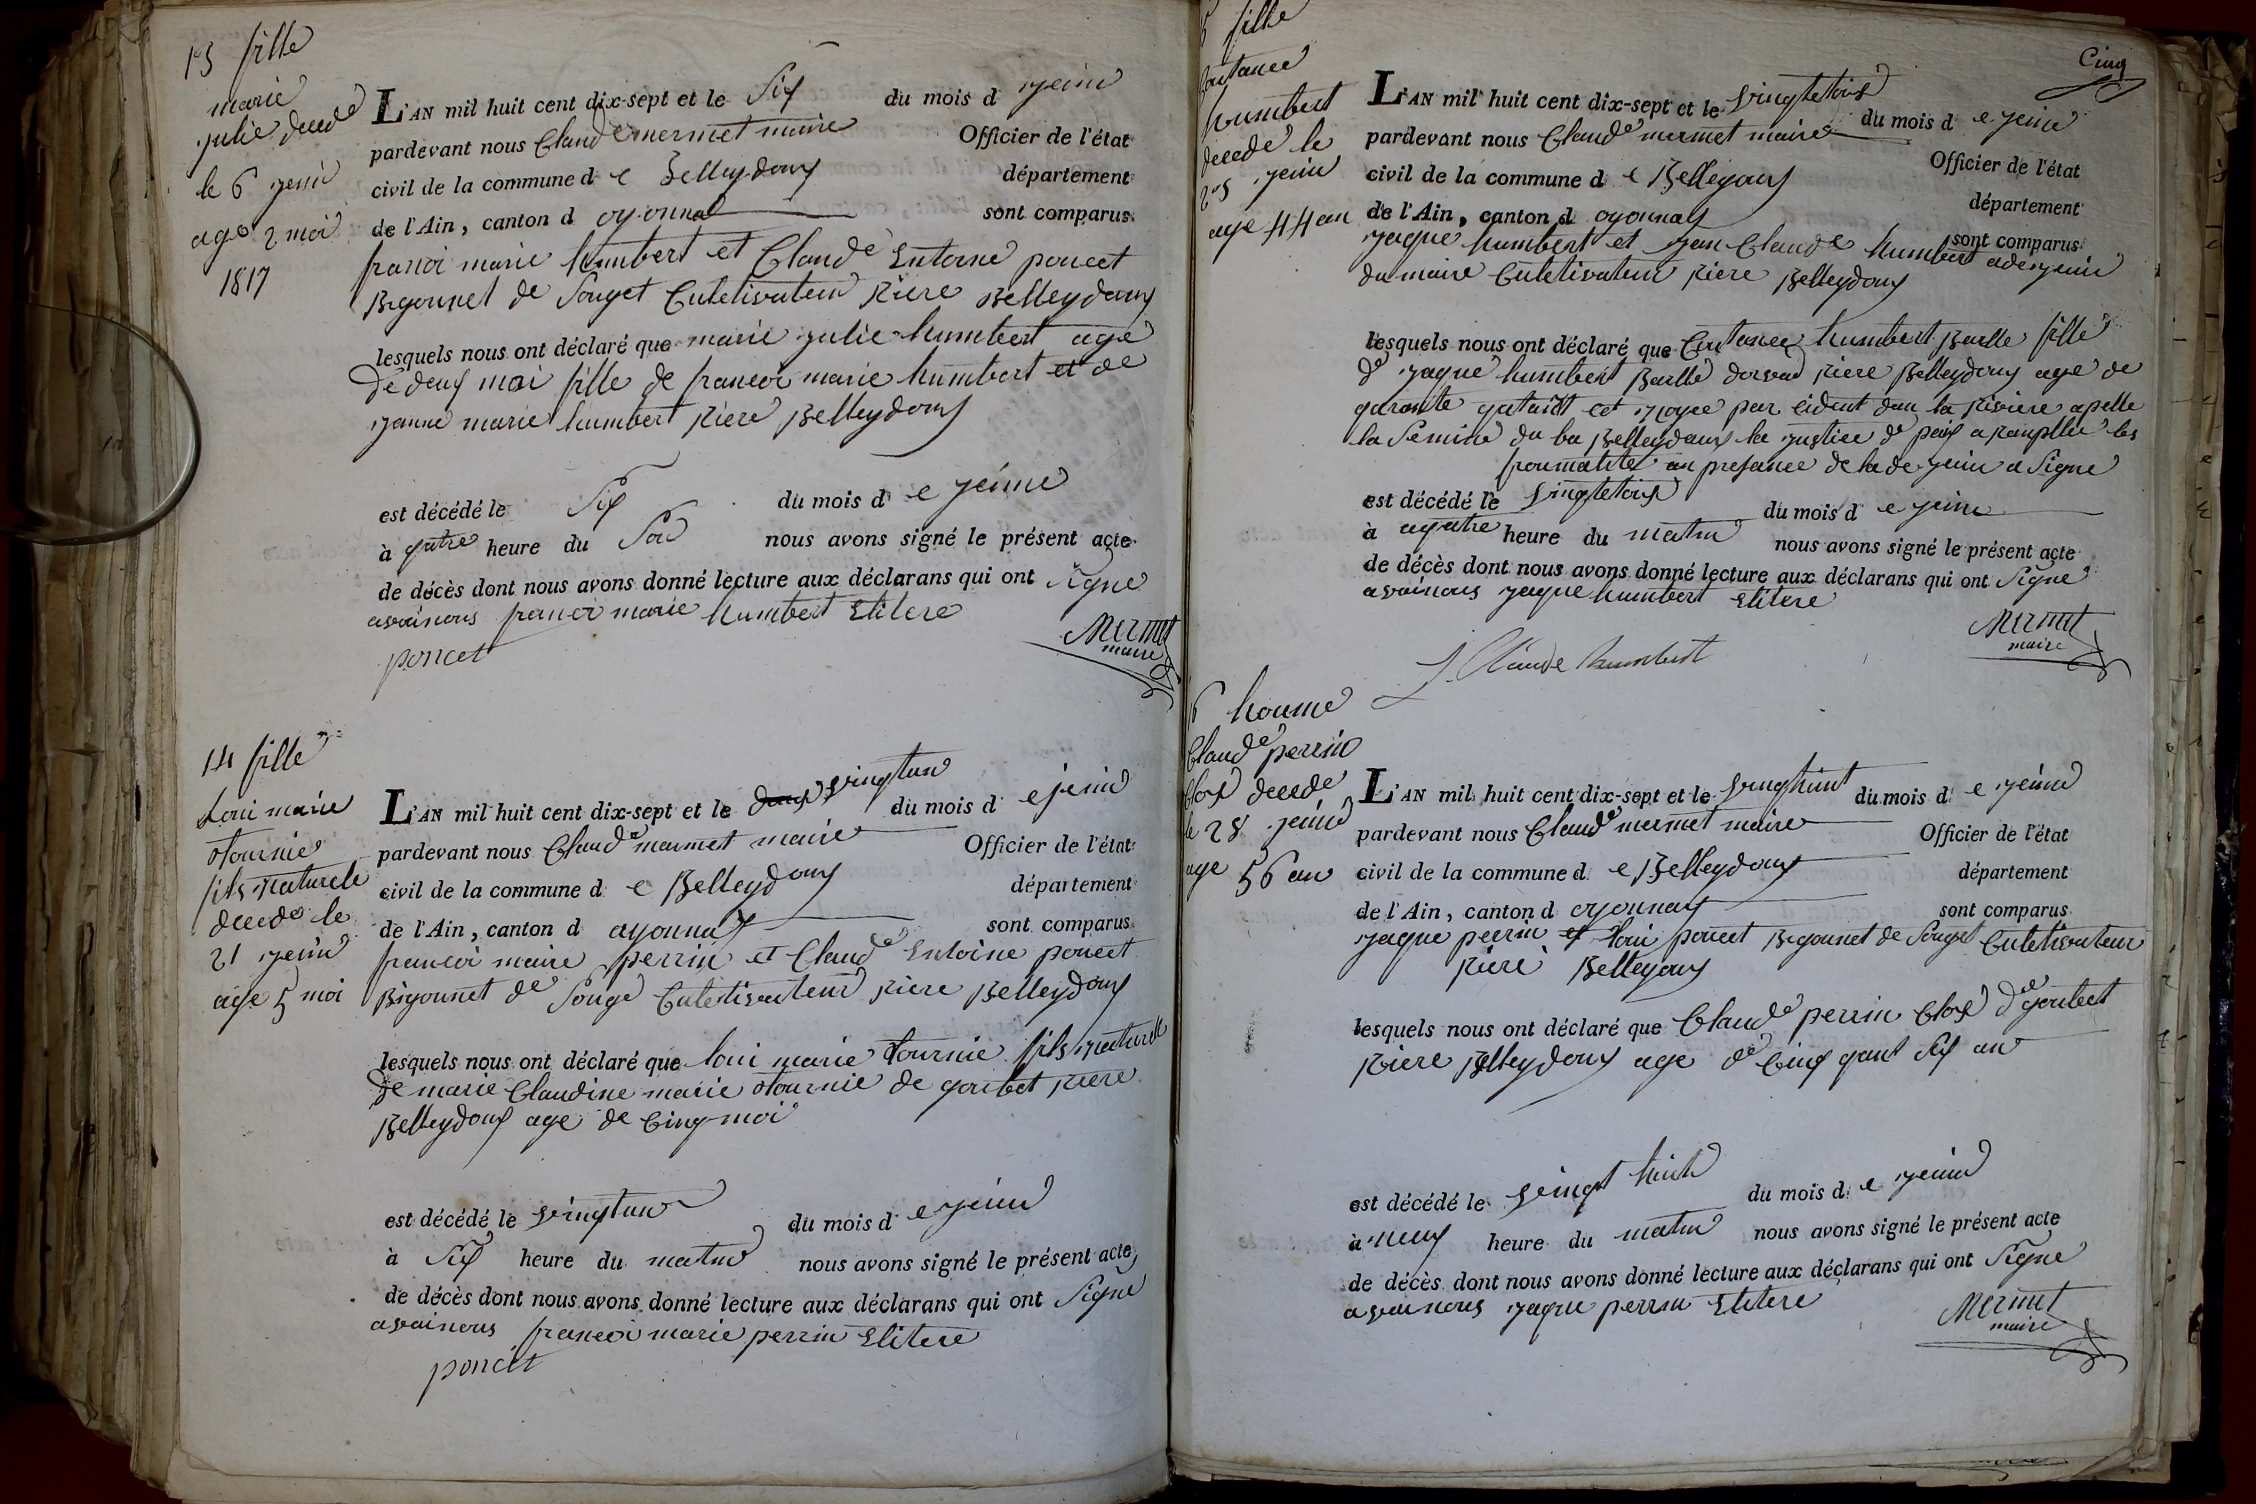 13 fille
marie
julie decede
le 6 jeuin
age 2 moi
1817
L'AN mil huit cent dix-sept et le Six du mois d jeuin
pardevant nous Claude mermet maire Officier de l'état
civil de la commune d e Belleydoux département
de l'Ain, canton d oyonnax sont comparus
francoi marie humbert et Claude Entoine poncet
Bigonnet de Souget Culetivateur riere Belleydoux
lesquels nous ont déclaré que marie julie humbert age
de deux moi fille de francoi marie humbert et de
janne marie humbert riere Belleydoux
est décédé le Six du mois d e jeuine
à quatre heure du Soir nous avons signé le présent acte
de décès dont nous avons donné lecture aux déclarans qui ont signe
avainous francoi marie humbert Elitere
poncet
mermet
maire
14 fille
Loui marie
tournie
fils naturele
decede le
21 jeuin
age 5 moi
L'AN mil huit cent dix-sept et le vingtun du mois d e jeuin
pardevant nous Claude mermet maire Officier de l'état
civil de la commune d e Belleydoux département
de l'Ain, canton d oyonnax sont comparus
francoi marie perrin et Claude Entoine poncet
Bigonnet de Souge Culetivateur riere Belleydoux
lesquels nous ont déclaré que loui marie tournie fils naturelle
de marie Claudine marie tournie de gorbet riere
Belleydoux age de Cinq moi
est décédé le vingtun du mois d e jeuin
à Six heure du matin nous avons signé le présent acte
de décès dont nous avons donné lecture aux déclarans qui ont Signe
avainous francoi marie perrin Elitere
poncet
Cinq
fille
humbert
decede le
jeuin
age 44 an
L'AN mil huit cent dix-sept et le vingtetrois du mois d e jeuin
pardevant nous Claude mermet maire Officier de l'état
civil de la commune d e Belleydoux département
de l'Ain, canton d oyonnax sont comparus
jaque humbert et jean Claude humbert adejeuin
du maire Culetivateur riere Belleydoux
lesquels nous ont déclaré que humbert Baille fille
de jaque humbert Baille riere Belleydoux age de
garante gatant est noyee par cident dan la riviere apelle
la Semine du ba Belleydoux la justice de paix a ranpllie les
formalite an presance de lade jeuin a Signe
est décédé le vingtetrois du mois d e jeuin
à aquatre heure du matin nous avons signé le présent acte
de décès dont nous avons donné lecture aux déclarans qui ont Signe
avainous jaque humbert Elitere
J. Claude humbert
mermet
maire
6 houme
Claude perrin
Clox decede
le 28 jeuin
age 56 an
L'AN mil huit cent dix-sept et le vinghuit du mois d e jeuin
pardevant nous Claude mermet maire Officier de l'état
civil de la commune d e Belleydoux département
de l'Ain, canton d oyonnax sont comparus
jaque perrin et loui poncet Bigonnet de Souget Culetivateur
riere Belleydoux
lesquels nous ont déclaré que Claude perrin Clox de gorbect
riere Belleydoux age de Cinq gant Six an
est décédé le vingt huit du mois d e jeuin
à neuf heure du matin nous avons signé le présent acte
de décès dont nous avons donné lecture aux déclarans qui ont Signe
avainous jaque perrin Elitere
mermet
maire